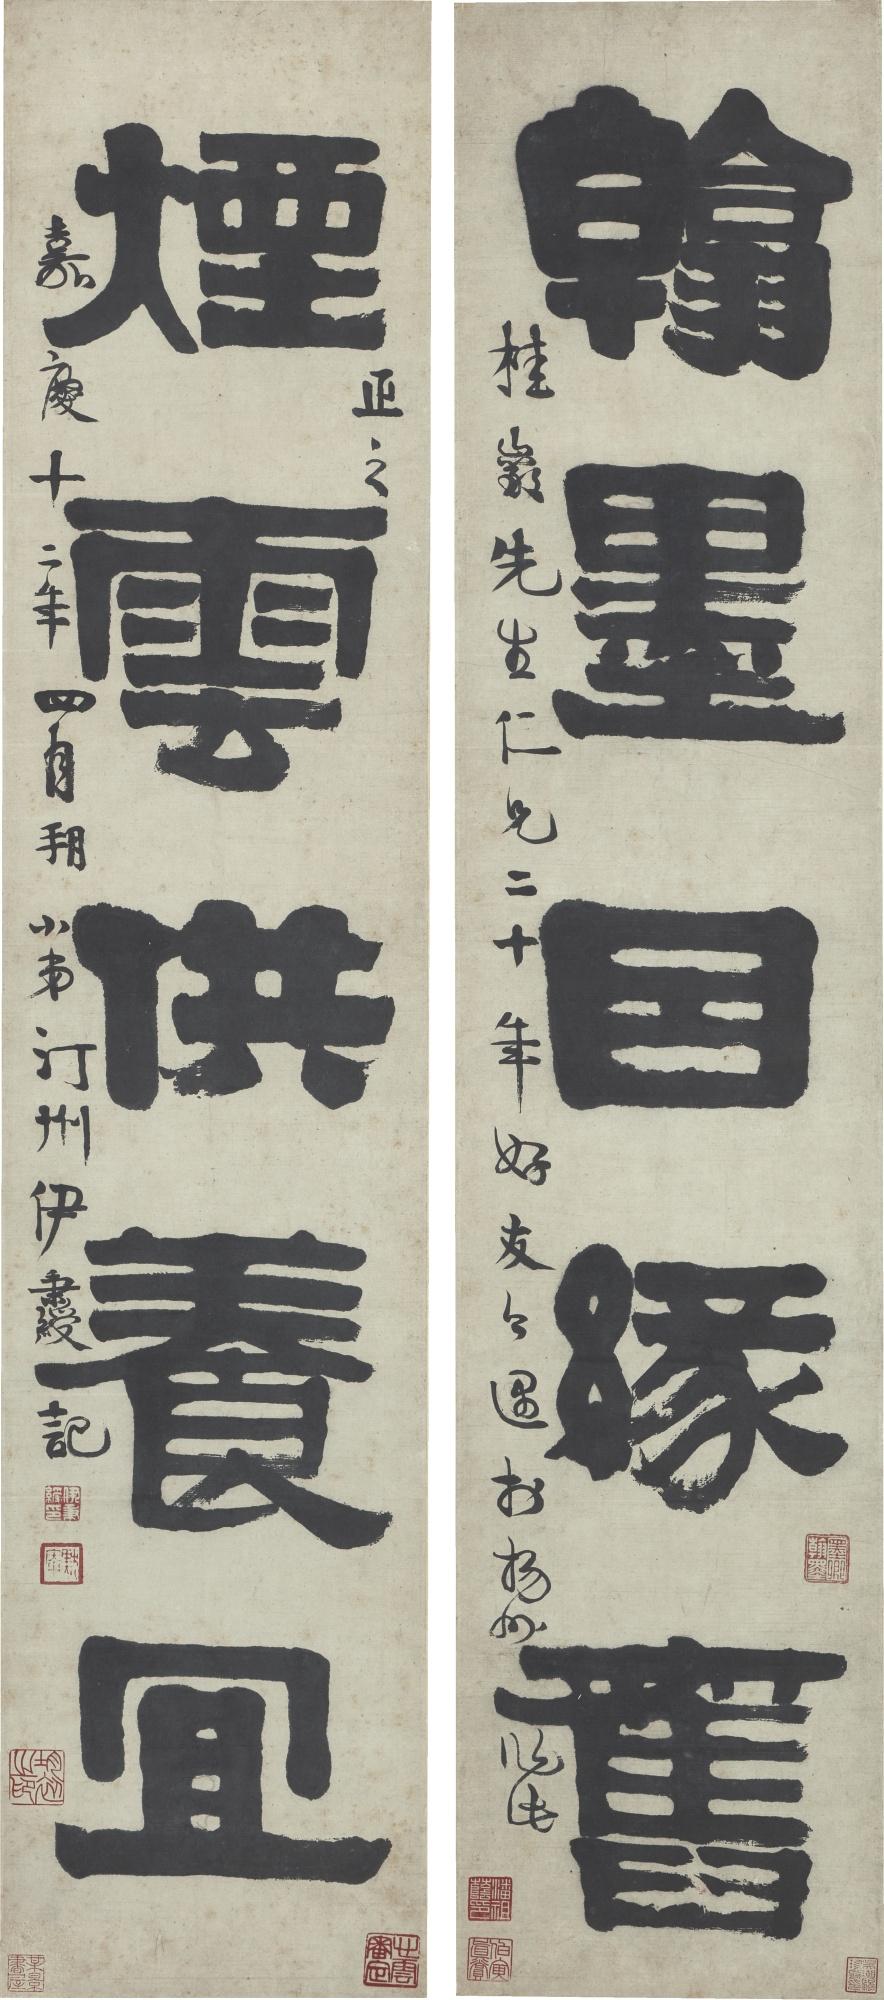 翰墨因緣舊
桂巖先生仁兄二十年好友今遇於揚州作此
煙雲供養宜
正之
嘉慶十二年四月朔小弟汀州伊秉綬記